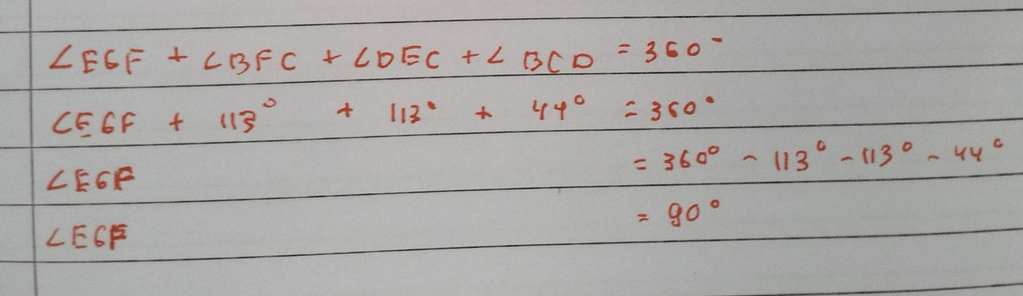 ∠EGF + ∠BFC + ∠DEC + ∠BCD = 360°
∠EGF + 113° + 113° + 44° = 360°
∠EGF = 360° - 113° - 113° - 44°
∠EGF = 90°